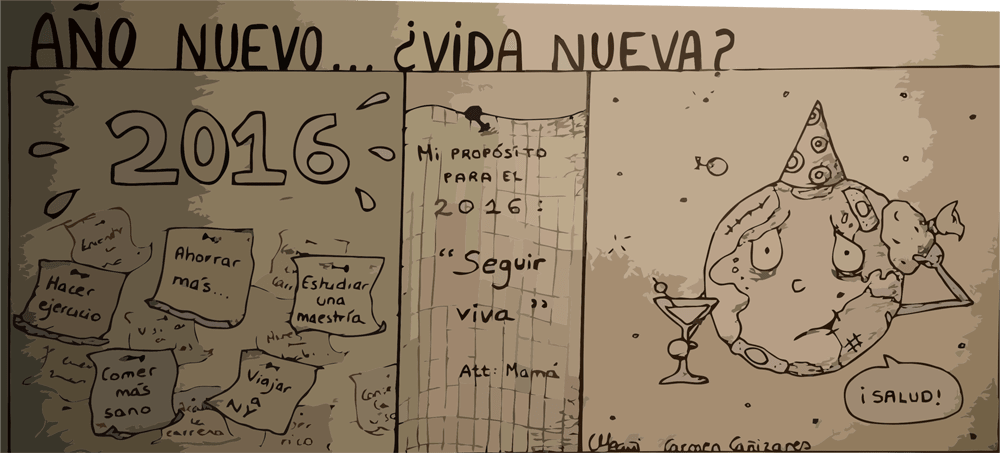 AÑO NUEVO... ¿VIDA NUEVA?
2016
Ahorrar
más...
Hacer
ejercicio
Estudiar
una
maestría
Comer
más
sano
Viajar
a
NY
Mi PROPÓSITO
PARA EL
2016:
"Seguir
viva"
Att: Mamá
¡SALUD!
Carmen Cañizares